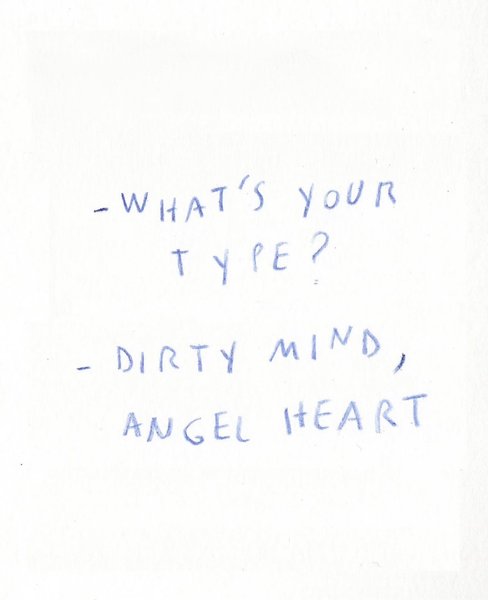 - WHAT'S YOUR
TYPE?
- DIRTY MIND,
ANGEL HEART